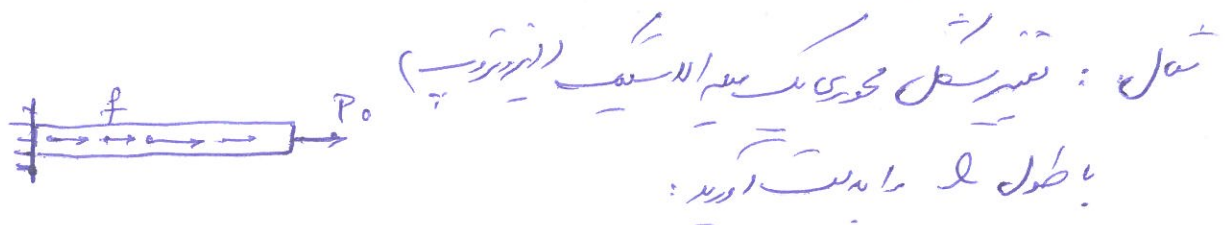 مثال : تغییر شکل محوری یک میله الاستیک (ایزوتروپ)
با طول l را بدست آورید :
f
P₀